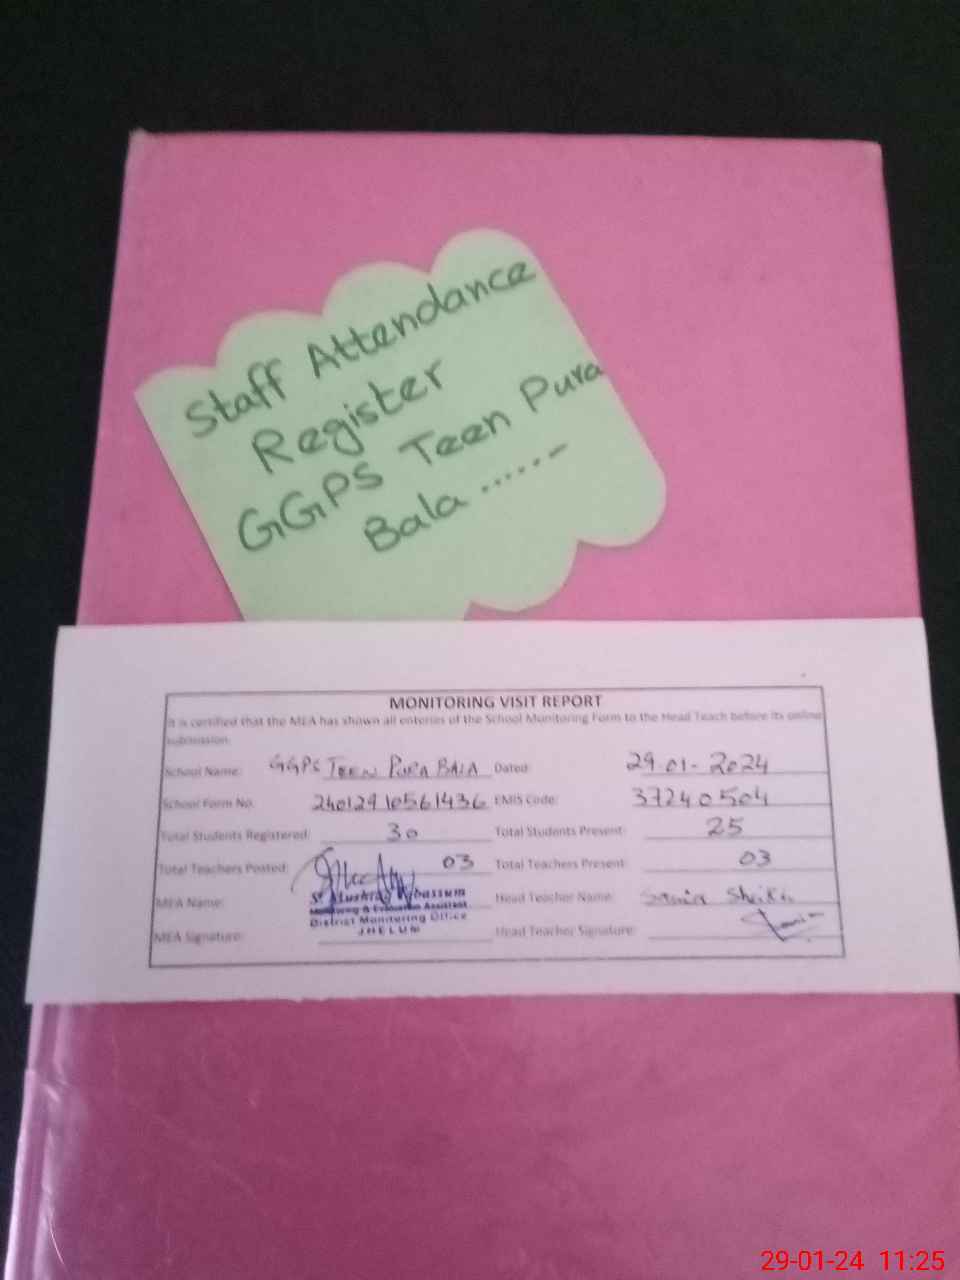 Staff Attendance
Register
GGPS Teen Pura
Bala ......-
MONITORING VISIT REPORT
It is certified that the MEA has shown all enteries of the School Monitoring Form to the Head Teach before its online
submission.
School Name: GGPS TEEN PURA BALA Dated: 29-01-2024
School Form No. 24012910561436 EMIS Code: 37240504
Total Students Registered: 30 Total Students Present: 25
Total Teachers Posted: 03 Total Teachers Present: 03
MEA Name: Head Teacher Name: Sheikh
Monitoring & Evaluation Assistant
District Monitoring Office
JHELUM
MEA Signature: Head Teacher Signature:
29-01-24 11:25